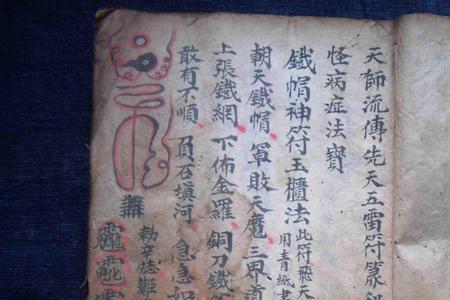 天師流傳先天五雷符篆
怪病症法寶
鐵帽神符玉櫃法
此符飛天
用青紙書
朝天鐵帽罩敗天魔三界
上張鐵網下佈金羅銅刀鐵
敢有不順負石填河急急
勅辛忠